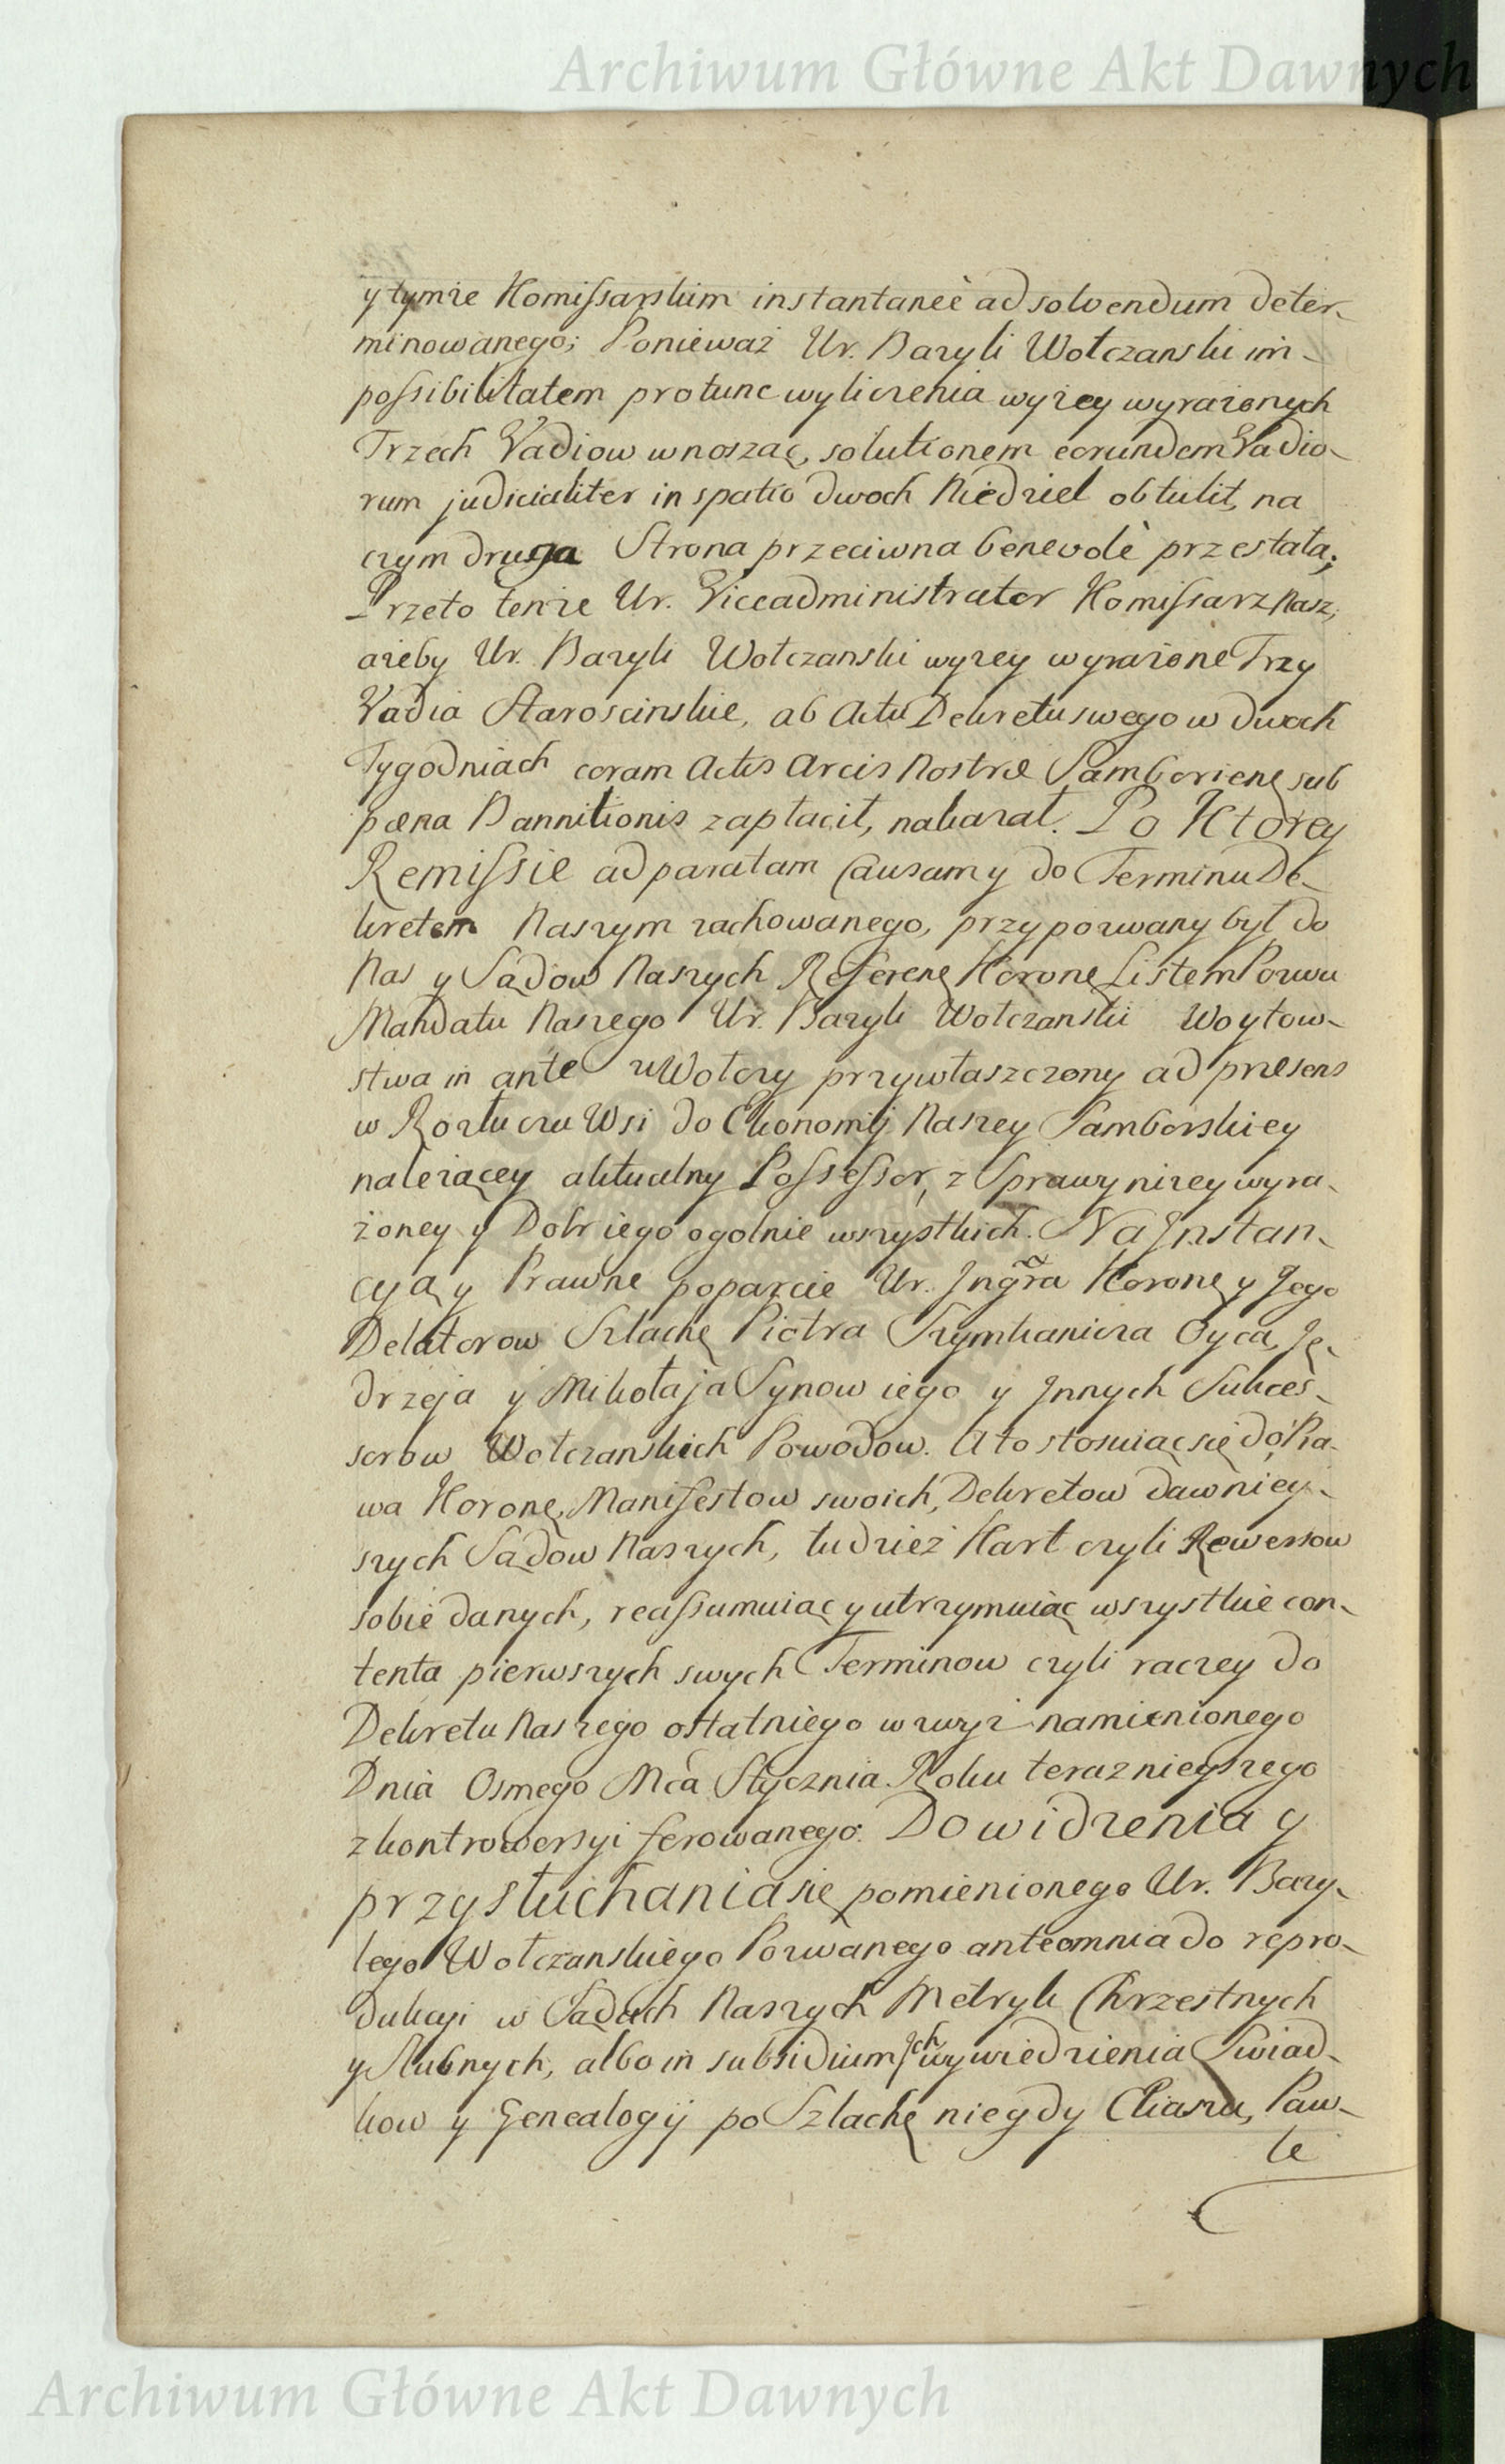 Archiwum Główne Akt Dawnych
y tymże Komissarskim instantaneè ad solvendum deter-
minowanego; Ponieważ Ur. Bazyli Wołczanski im-
possibilitatem protunc wyliczenia wyżey wyrażonych
Trzech Vadiow wnosząc, solutionem eorundem Vadio-
rum judicialiter in spatio dwoch Niedziel obtulit, na
czym druga Strona przeciwna benevolè przestała;
Przeto tenże Ur. Viceadministrator Komissarz Nasz,
ażeby Ur. Bazyli Wołczanski wyżey wyrażone Trzy
Vadia Staroscinskie, ab Actu Dekretu swego w dwoch
Tygodniach coram Actis Arcis Nostræ Samborienę sub
pæna Bannitionis zapłacił, nakazał. Po Ktorey
Remissie ad paratam Causam y do Terminu De-
kretem Naszym zachowanego, przypozwany był do
Nas y Sądow Naszych Referenę Koronę Listem Pozwu
Mandatu Naszego Ur. Bazyli Wołczanski Woytow-
stwa in ante w Wołczy przywłaszczony ad præsens
w Rozłuczu Wsi do Ekonomij Naszey Samborskiey
należącey aktualny Possessor, z Sprawy niżey wyra-
żoney y Dobr iego ogolnie wszystkich. Na Jnstan-
cyą y Prawne poparcie Ur. Jngra Koronę y Jego
Delatorow Szlachę Piotra Szymkanicza Oyca, Ję-
drzeja y Mikołaja Synow iego y Jnnych Sukces-
sorow Wołczanskich Powodow. A to stosuiąc się do Pra-
wa Koronę, Manifestow swoich, Dekretow dawniey-
szych Sądow Naszych, tudzież Kart czyli Rewersow
sobie danych, reassumuiąc y utrzymuiąc wszystkie con-
tenta pierwszych swych Terminow czyli raczey do
Dekretu Naszego ostatniego wzwyż namienionego
Dnia Osmego Mca Stycznia Roku teraznieyszego
z kontrowersyi ferowanego. Do widzenia y
przysłuchania się pomienionego Ur. Bazy-
lego Wołczanskiego Pozwanego anteomnia do repro-
dukcyi w Sądach Naszych Metryk Chrzestnych
y Slubnych, albo in subsidium Jch wywiedzienia Swiad-
kow y Genealogij po Szlachę niegdy Eliaszu, Paw-
le
Archiwum Główne Akt Dawnych